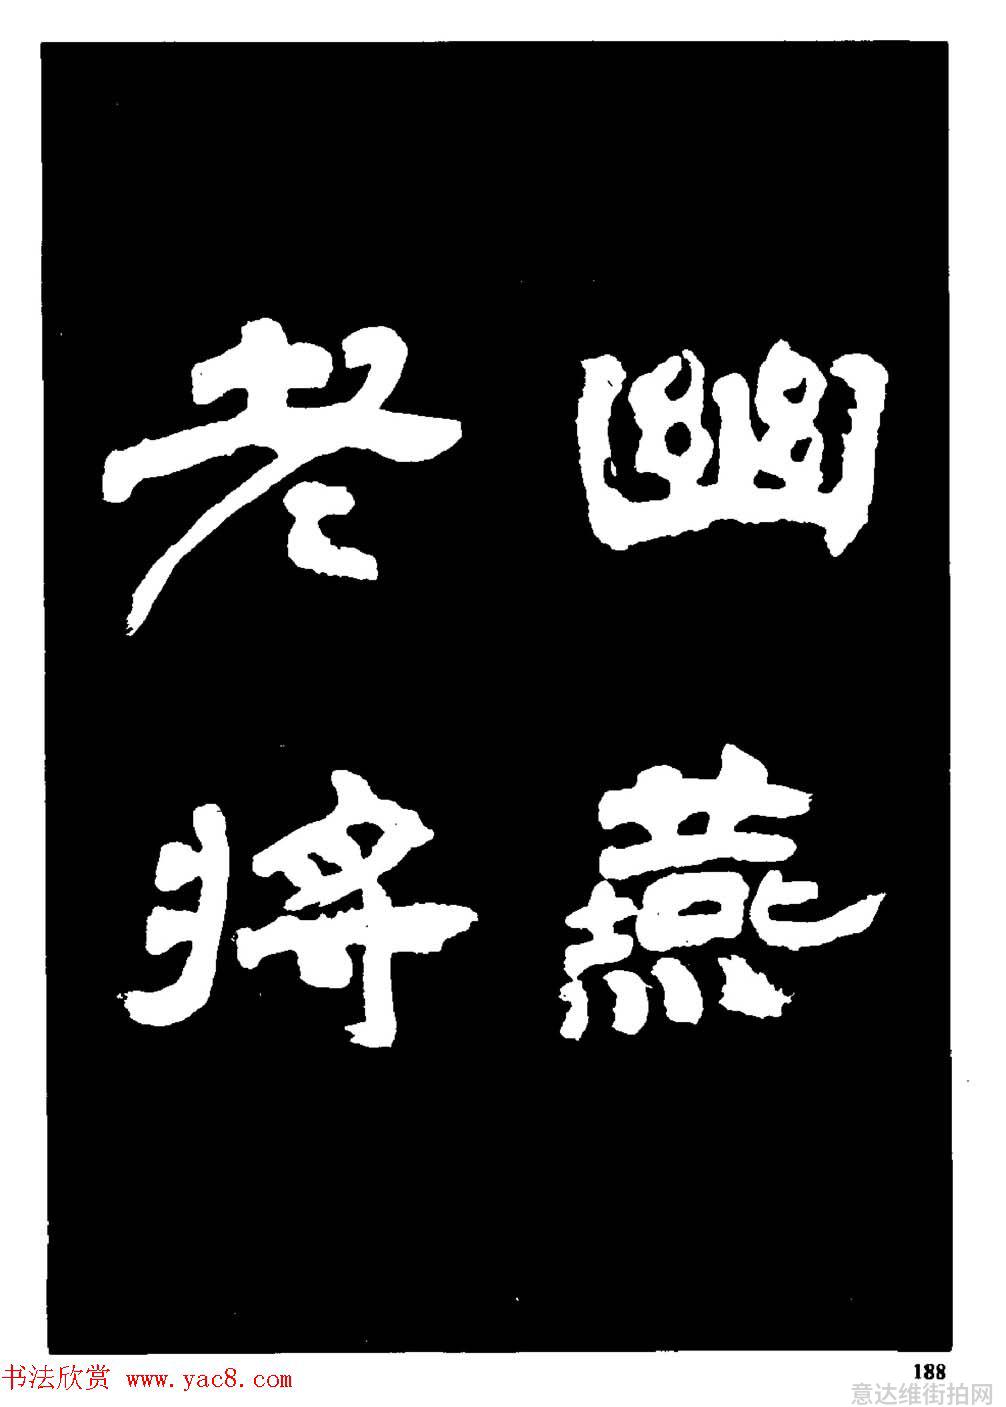 幽燕
老将
188
书法欣赏 www.yac8.com
意达维街拍网